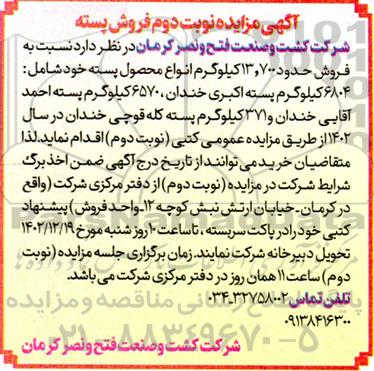 آگهی مزایده نوبت دوم فروش پسته
شرکت کشت و صنعت فتح و نصر کرمان در نظر دارد نسبت به
فروش حدود ۱۳٫۷۰۰ کیلوگرم انواع محصول پسته خود شامل:
۶۸۰۴ کیلوگرم پسته اکبری خندان، ۶۵۷۰ کیلوگرم پسته احمد
آقایی خندان و ۳۷۱ کیلوگرم پسته کله قوچی خندان در سال
۱۴۰۲ از طریق مزایده عمومی کتبی (نوبت دوم) اقدام نماید. لذا
متقاضیان خرید می توانند از تاریخ درج آگهی ضمن اخذ برگ
شرایط شرکت در مزایده (نوبت دوم) از دفتر مرکزی شرکت (واقع
در کرمان - خیابان ارتش نبش کوچه ۱۲ - واحد فروش) پیشنهاد
کتبی خود را در پاکت سربسته، تا ساعت ۱۰ روز شنبه مورخ ۱۴۰۲/۱۲/۱۹
تحویل دبیرخانه شرکت نمایند. زمان برگزاری جلسه مزایده (نوبت
دوم) ساعت ۱۱ همان روز در دفتر مرکزی شرکت می باشد.
تلفن تماس ۰۳۴-۳۲۷۵۸۰۰۲
۰۹۱۳۸۴۱۶۳۰۰
شرکت کشت و صنعت فتح و نصر کرمان
۰۲۱-۸۸۳۴۹۶۷۰-۵